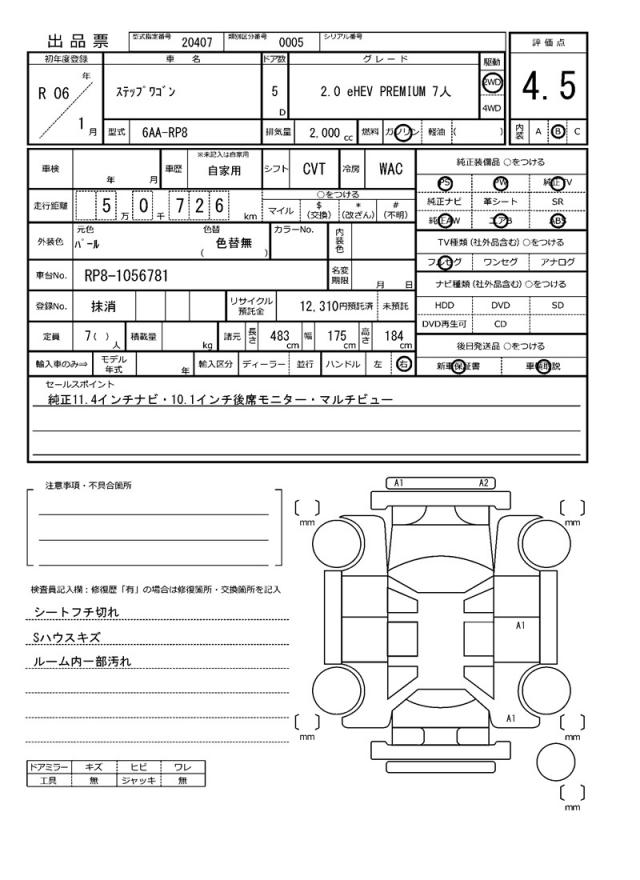 出品票
型式指定番号 20407 類別区分番号 0005 シリアル番号
初年度登録 車名 ドア数 グレード 駆動 評価点
R 06 年 1 月
ステップワゴン 5 D 2.0 eHEV PREMIUM 7人 2WD 4WD 4.5
型式 6AA-RP8 排気量 2,000 cc 燃料 ガソリン 軽油 ( ) 内装 A B C
車検 年 月 車歴 ※未記入は自家用 自家用 シフト CVT 冷房 WAC
純正装備品 ○をつける
PS PW 純正TV
純正ナビ 革シート SR
純正AW エアB ABS
走行距離 5 万 0 千 7 2 6 km
○をつける
マイル $(交換) *(改ざん) #(不明)
外装色 元色 パール 色替 色替無 ( ) カラーNo. 内装色
TV種類(社外品含む)○をつける
フルセグ ワンセグ アナログ
車台No. RP8-1056781 名変期限 月 日
ナビ種類(社外品含む)○をつける
HDD DVD SD
DVD再生可 CD
登録No. 抹消 リサイクル預託金 12,310円預託済 未預託
定員 7( )人 積載量 kg 諸元 長さ 483 cm 幅 175 cm 高さ 184 cm
後日発送品 ○をつける
新車保証書 車輌取説
輸入車のみ⇒ モデル年式 年 輸入区分 ディーラー 並行 ハンドル 左 右
セールスポイント
純正11.4インチナビ・10.1インチ後席モニター・マルチビュー
注意事項・不具合箇所
検査員記入欄：修復歴「有」の場合は修復箇所・交換箇所を記入
シートフチ切れ
Sハウスキズ
ルーム内一部汚れ
ドアミラー キズ ヒビ ワレ
工具 無 ジャッキ 無
A1 A2
mm mm
A1
A1
mm mm
mm